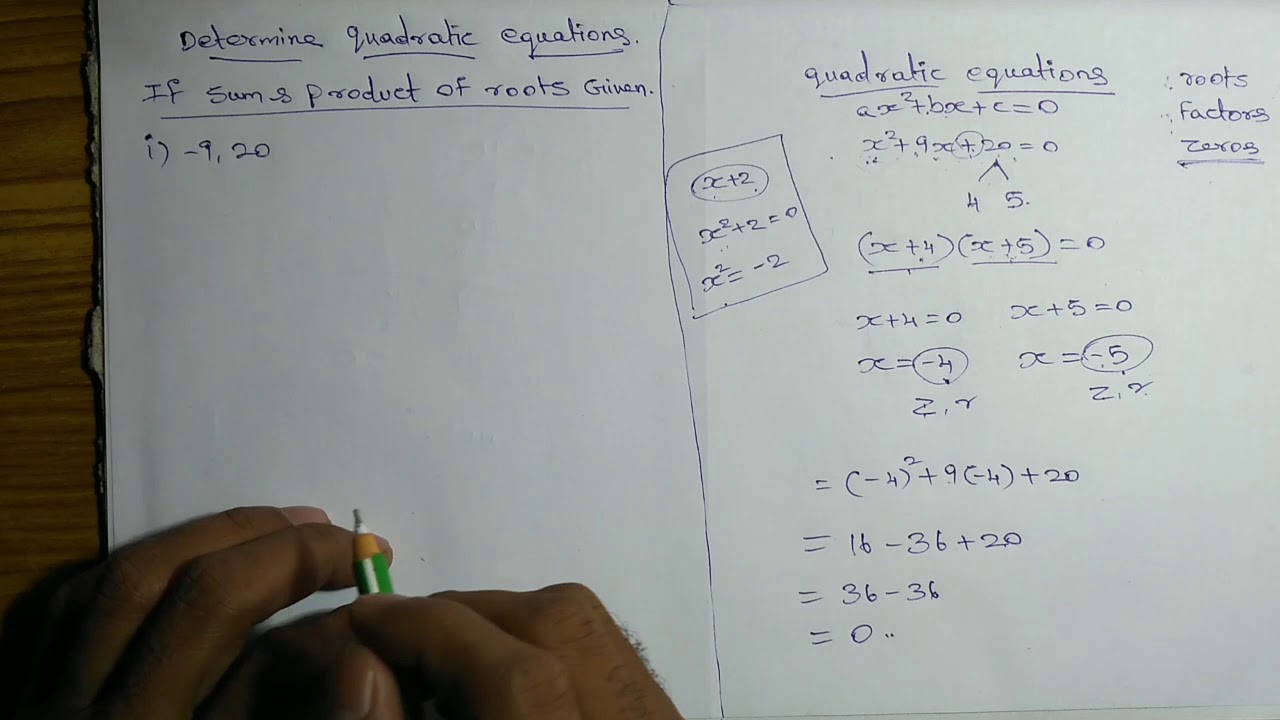 Determine quadratic equations.
If sum & product of roots Given.
i) -9, 20
x+2
x²+2=0
x²= -2
quadratic equations
ax²+bx+c=0
x²+9x+20=0
4 5.
(x+4)(x+5)=0
x+4=0 x+5=0
x=-4 x=-5
Z, r Z, r
= (-4)²+9(-4)+20
= 16-36+20
= 36-36
= 0
: roots
factors
zeros